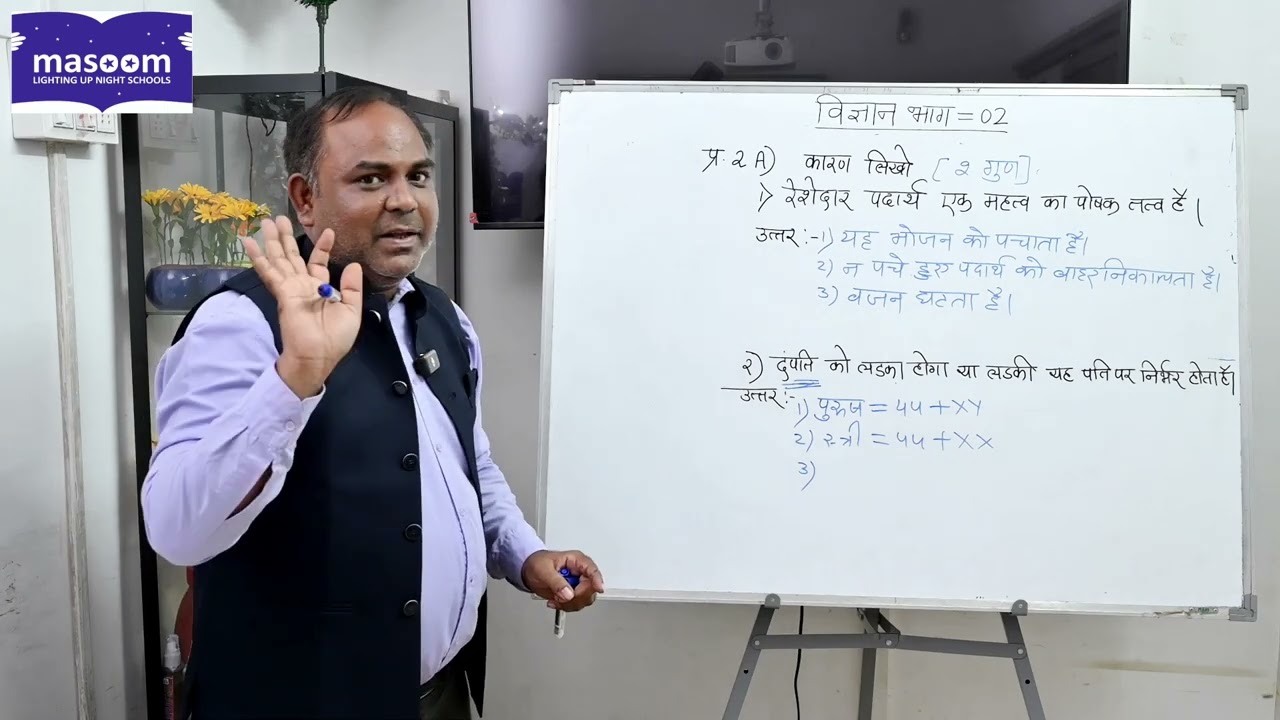 masoom
LIGHTING UP NIGHT SCHOOLS
विज्ञान भाग = 02
प्र. 2 A) कारण लिखो [ 2 गुण ]
1) रेशेदार पदार्थ एक महत्व का पोषक तत्व है |
उत्तर :- 1) यह भोजन को पचाता है।
2) न पचे हुए पदार्थ को बाहर निकालता है।
3) वजन घटता है।
२) दंपति को लडका होगा या लडकी यह पति पर निर्भर होता है।
उत्तर :-
1) पुरुष = 44 + XY
2) स्त्री = 44 + XX
3)